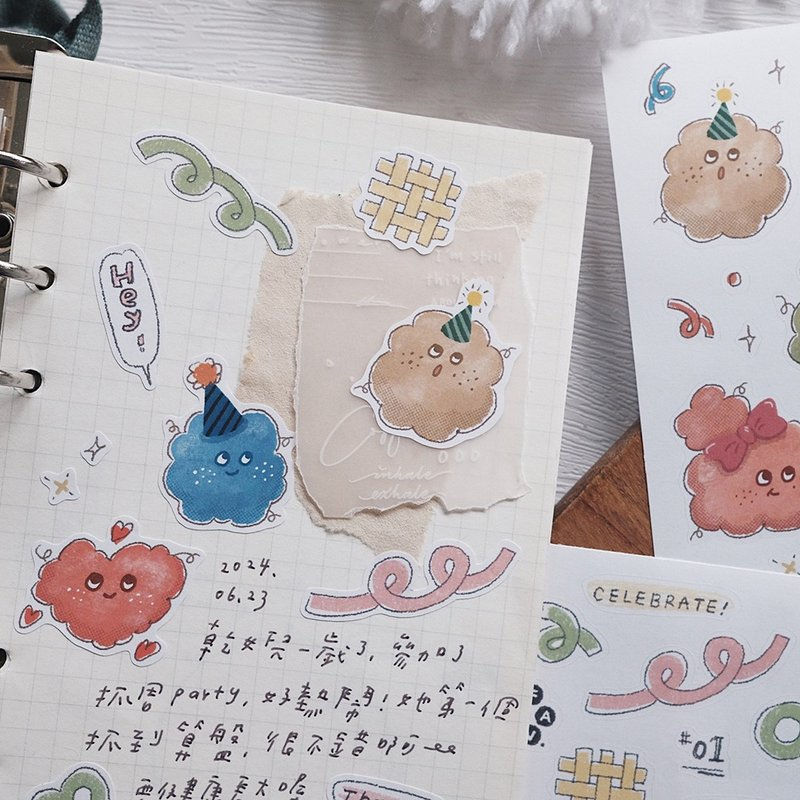 Hey!
I'm still
inhale
exhale
2024.
06.23
乾女兒一歲了,參加了
抓周party,好熱鬧!她第一個
抓到算盤,很不錯
健康長大
CELEBRATE!
#01